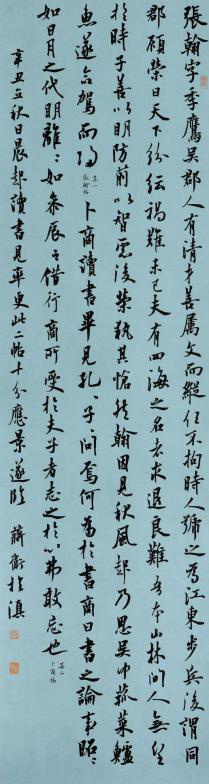 張翰字季鷹吳郡人有清才善屬文而縱任不拘時人號之為江東步兵後謂同
郡顧榮曰天下紛紜禍難未已夫有四海之名者求退良難吾本山林間人無望
於時子善以明防前以智慮後榮執其愴然翰因見秋風起乃思吳中菰菜鱸
魚遂命駕而歸 其一 張翰帖 卜商讀書畢見孔子子問焉何為於書商曰書之論事昭昭
如日月之代明離離如參辰之錯行商所受於夫子者志之於心弗敢忘也 其二 卜商帖
辛丑立秋日晨起讀書見率更此二帖十分應景遂臨 蔣 於滇